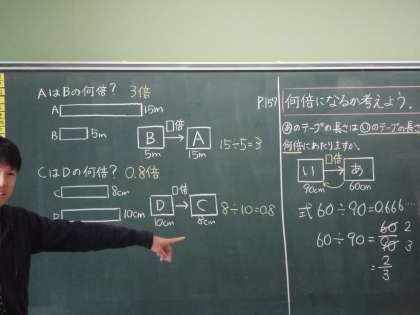 AはBの何倍？ 3倍
A 15m
B 5m
B □倍 A
5m 15m
15÷5=3
CはDの何倍？ 0.8倍
C 8cm
D 10cm
D □倍 C
10cm 8cm
8÷10=0.8
P157 何倍になるか考えよう.
あのテープの長さは いのテープの長さの
何倍にあたりますか。
い □倍 あ
90cm 60cm
式 60÷90=0.666…
60÷90=60/90 2 3
=2/3